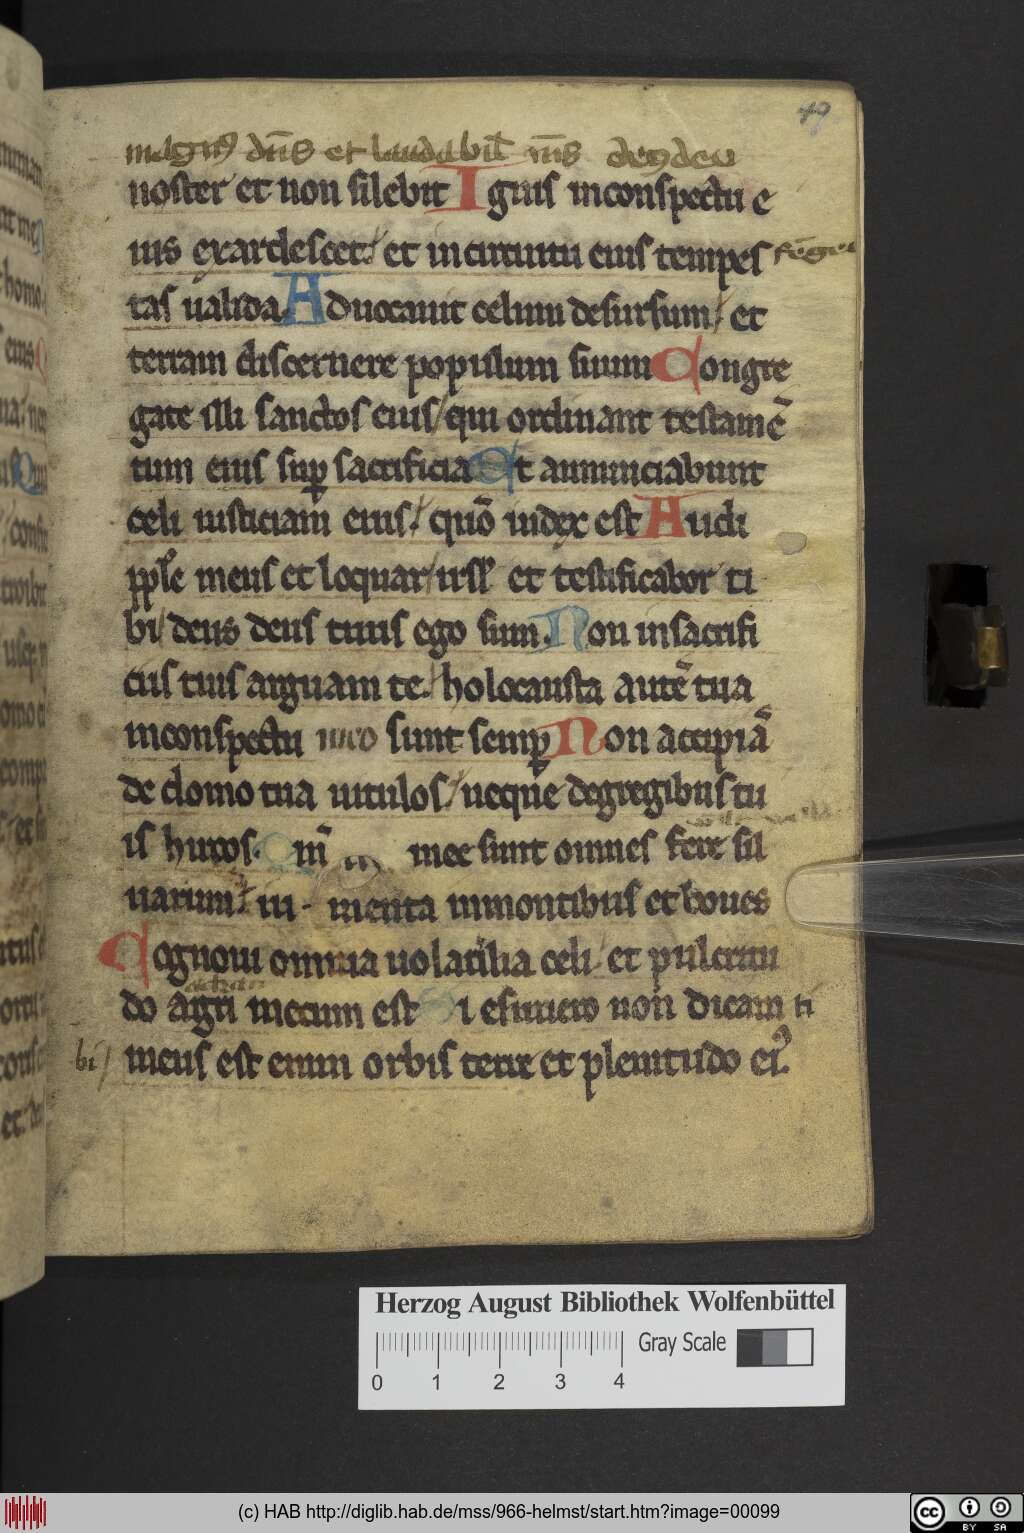 49
magnus dn̄s et laudabil
noster et non silebit Ignis inconspectu e
ius exardescet / et incircuitu eius tempes
tas ualida Aduocauit celum desursum / et
terram discernere populum suum Congre
gate illi sanctos eius / qui ordinant testamē
tum eius sup sacrificia Et annunciabunt
celi iusticiam eius / quō iudex est Audi
pple meus et loquar / isrl et testificabor ti
bi / deus deus tuus ego sum. Non insacrifi
ciis tuis arguam te / holocausta autē tua
inconspectu meo sunt semp Non accipiā
de domo tua uitulos / neque degregibus tu
is hircos. m̄ mee sunt omnes fere sil
uarum / iu menta inmontibus et boues
Cognoui omnia uolatilia celi / et pulcritu
do agri mecum est Si esuriero non dicam ti
bi / meus est enim orbis terre et plenitudo ei9.
Herzog August Bibliothek Wolfenbüttel
Gray Scale
0 1 2 3 4
(c) HAB http://diglib.hab.de/mss/966-helmst/start.htm?image=00099
cc BY SA